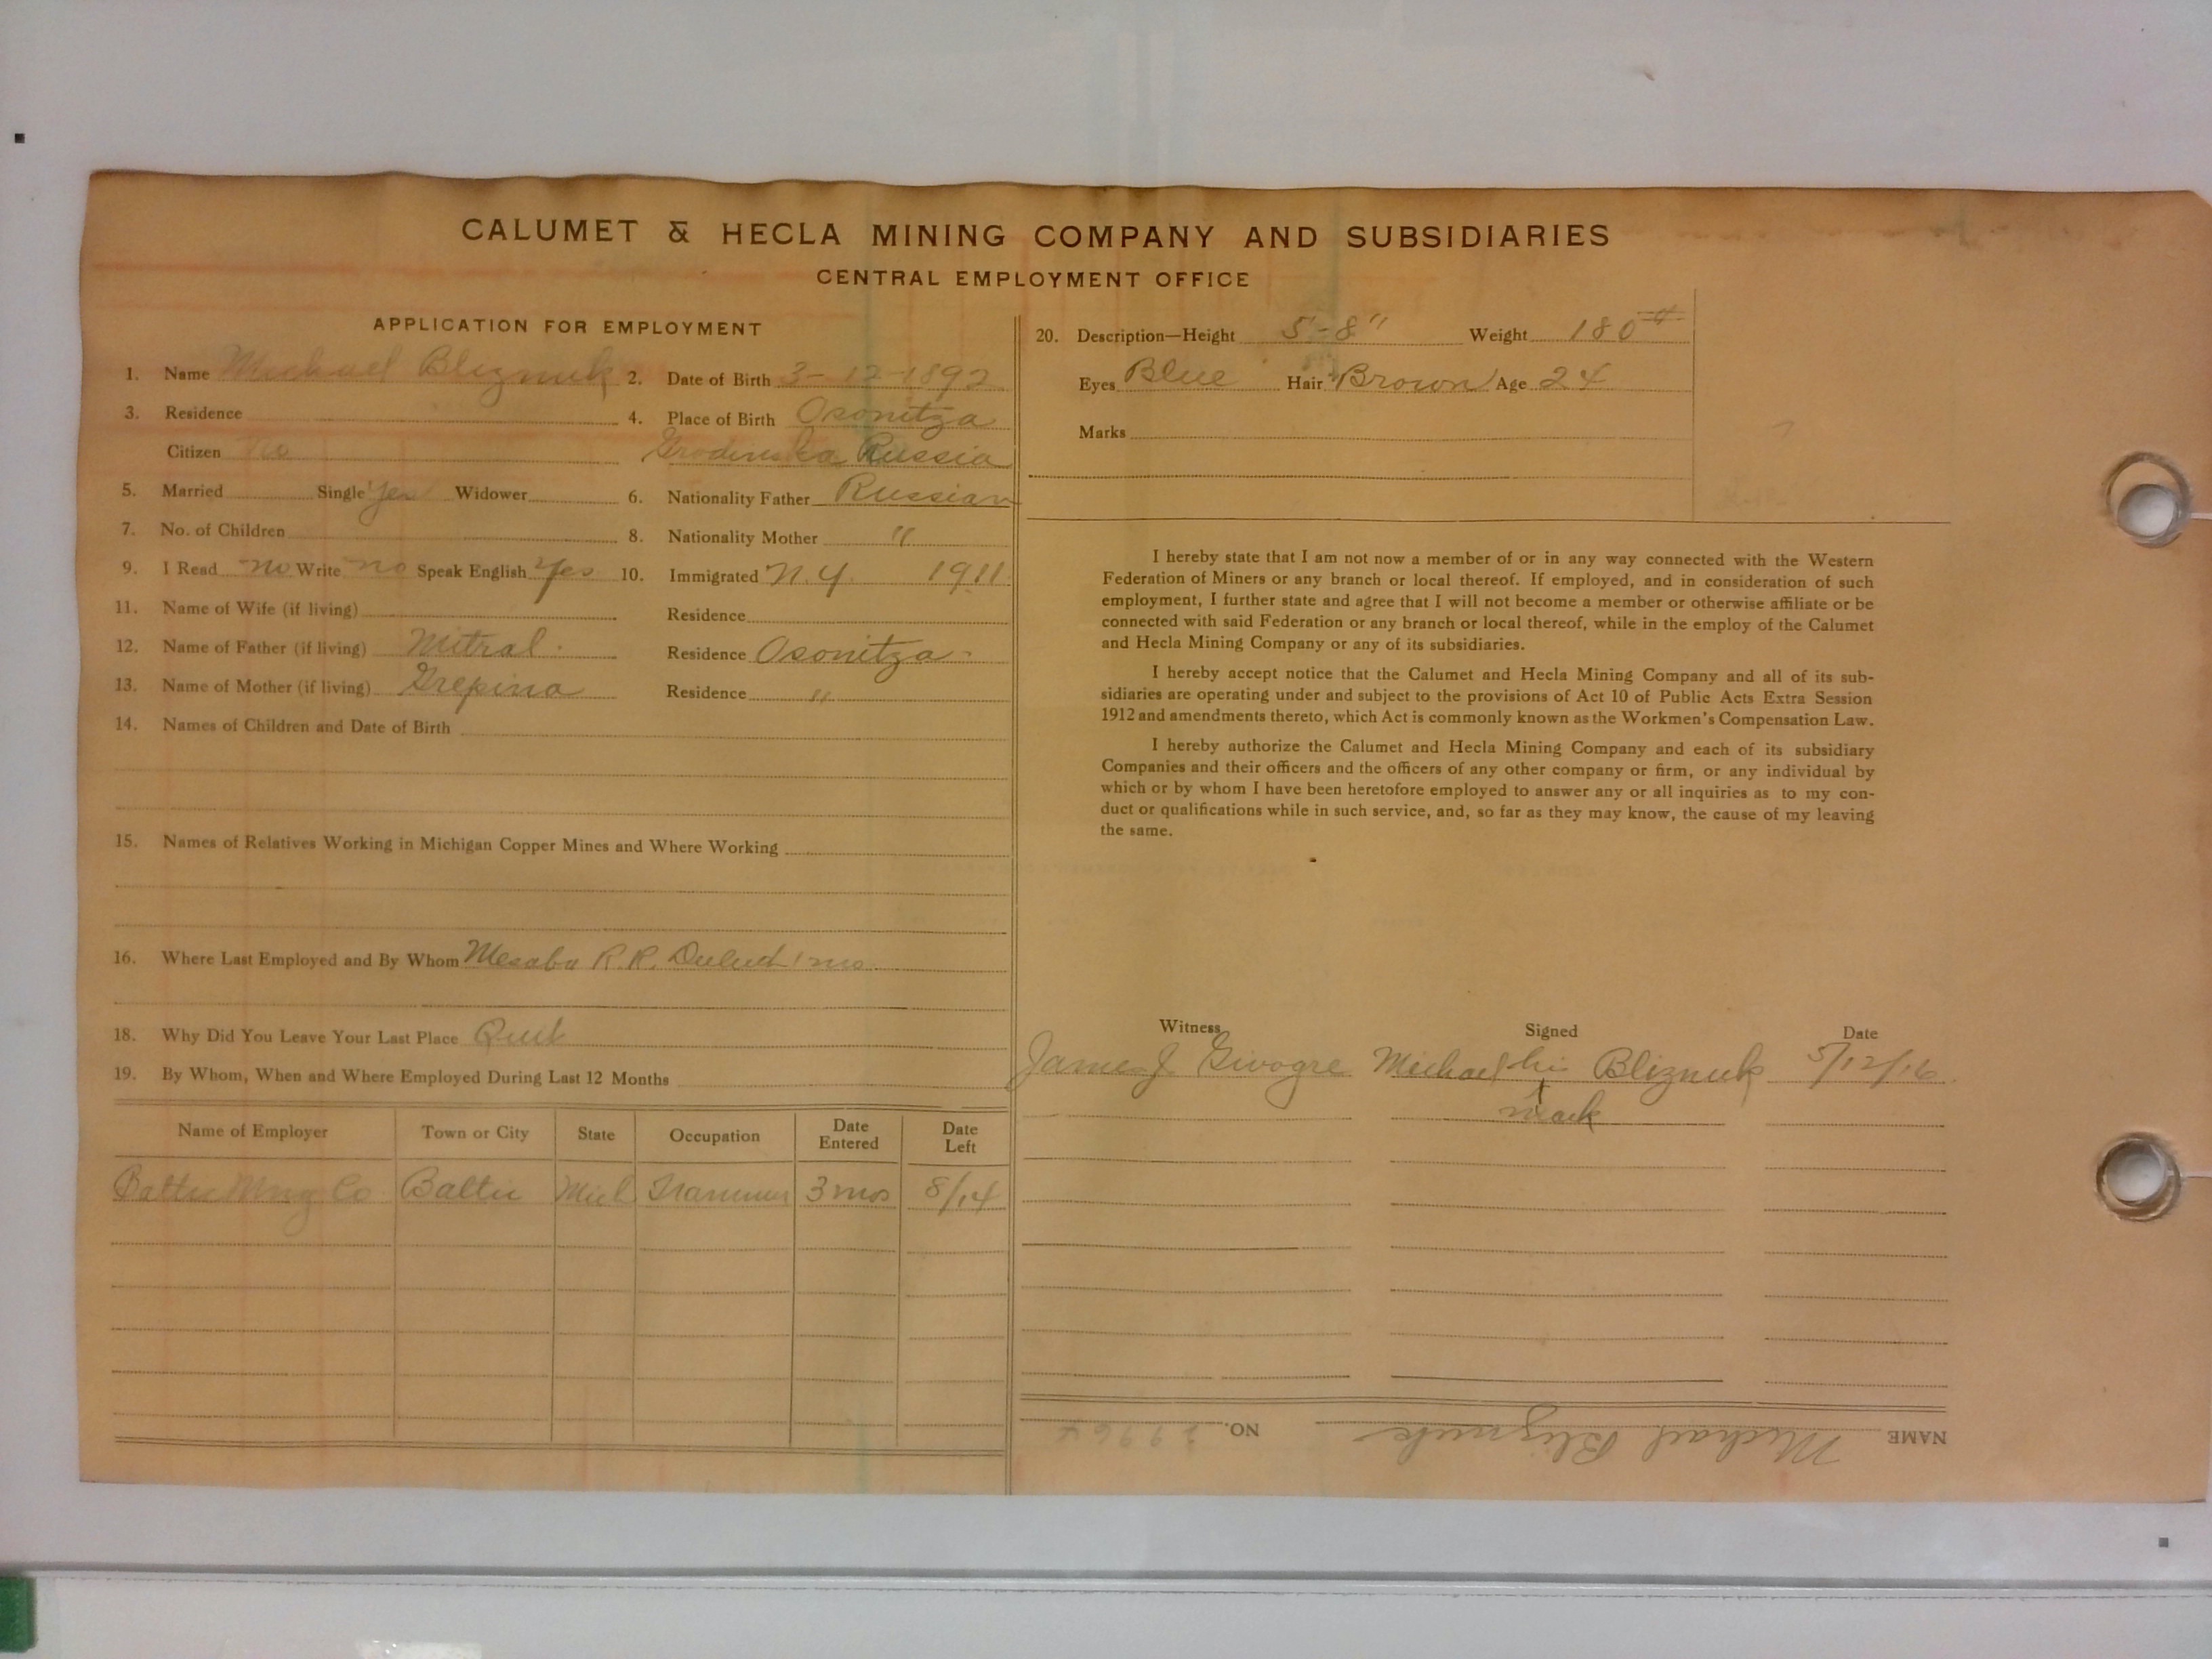 CALUMET & HECLA MINING COMPANY AND SUBSIDIARIES
CENTRAL EMPLOYMENT OFFICE
APPLICATION FOR EMPLOYMENT
1. Name Michael Bliznuk 2. Date of Birth 3-12-1892
3. Residence 4. Place of Birth Osonitza
Citizen no Russia
5. Married Single yes Widower 6. Nationality Father Russian
7. No. of Children 8. Nationality Mother "
9. I Read no Write no Speak English Yes 10. Immigrated N.Y. 1911
11. Name of Wife (if living) Residence
12. Name of Father (if living) Mitral Residence Osonitza
13. Name of Mother (if living) Grepina Residence "
14. Names of Children and Date of Birth
15. Names of Relatives Working in Michigan Copper Mines and Where Working
16. Where Last Employed and By Whom Mesaba R.R. 1 mo
18. Why Did You Leave Your Last Place Quit
19. By Whom, When and Where Employed During Last 12 Months
Name of Employer Town or City State Occupation Date Entered Date Left
Baltic Mng Co Baltic Mich Trammer 3 mos 8/14
20. Description—Height 5'-8" Weight 180 #
Eyes Blue Hair Brown Age 24
Marks
I hereby state that I am not now a member of or in any way connected with the Western
Federation of Miners or any branch or local thereof. If employed, and in consideration of such
employment, I further state and agree that I will not become a member or otherwise affiliate or be
connected with said Federation or any branch or local thereof, while in the employ of the Calumet
and Hecla Mining Company or any of its subsidiaries.
I hereby accept notice that the Calumet and Hecla Mining Company and all of its sub-
sidiaries are operating under and subject to the provisions of Act 10 of Public Acts Extra Session
1912 and amendments thereto, which Act is commonly known as the Workmen's Compensation Law.
I hereby authorize the Calumet and Hecla Mining Company and each of its subsidiary
Companies and their officers and the officers of any other company or firm, or any individual by
which or by whom I have been heretofore employed to answer any or all inquiries as to my con-
duct or qualifications while in such service, and, so far as they may know, the cause of my leaving
the same.
Witness Signed Date
James J Givogre Michael his Bliznuk 5/12/16
x
mark
NAME Michael Bliznuk NO.